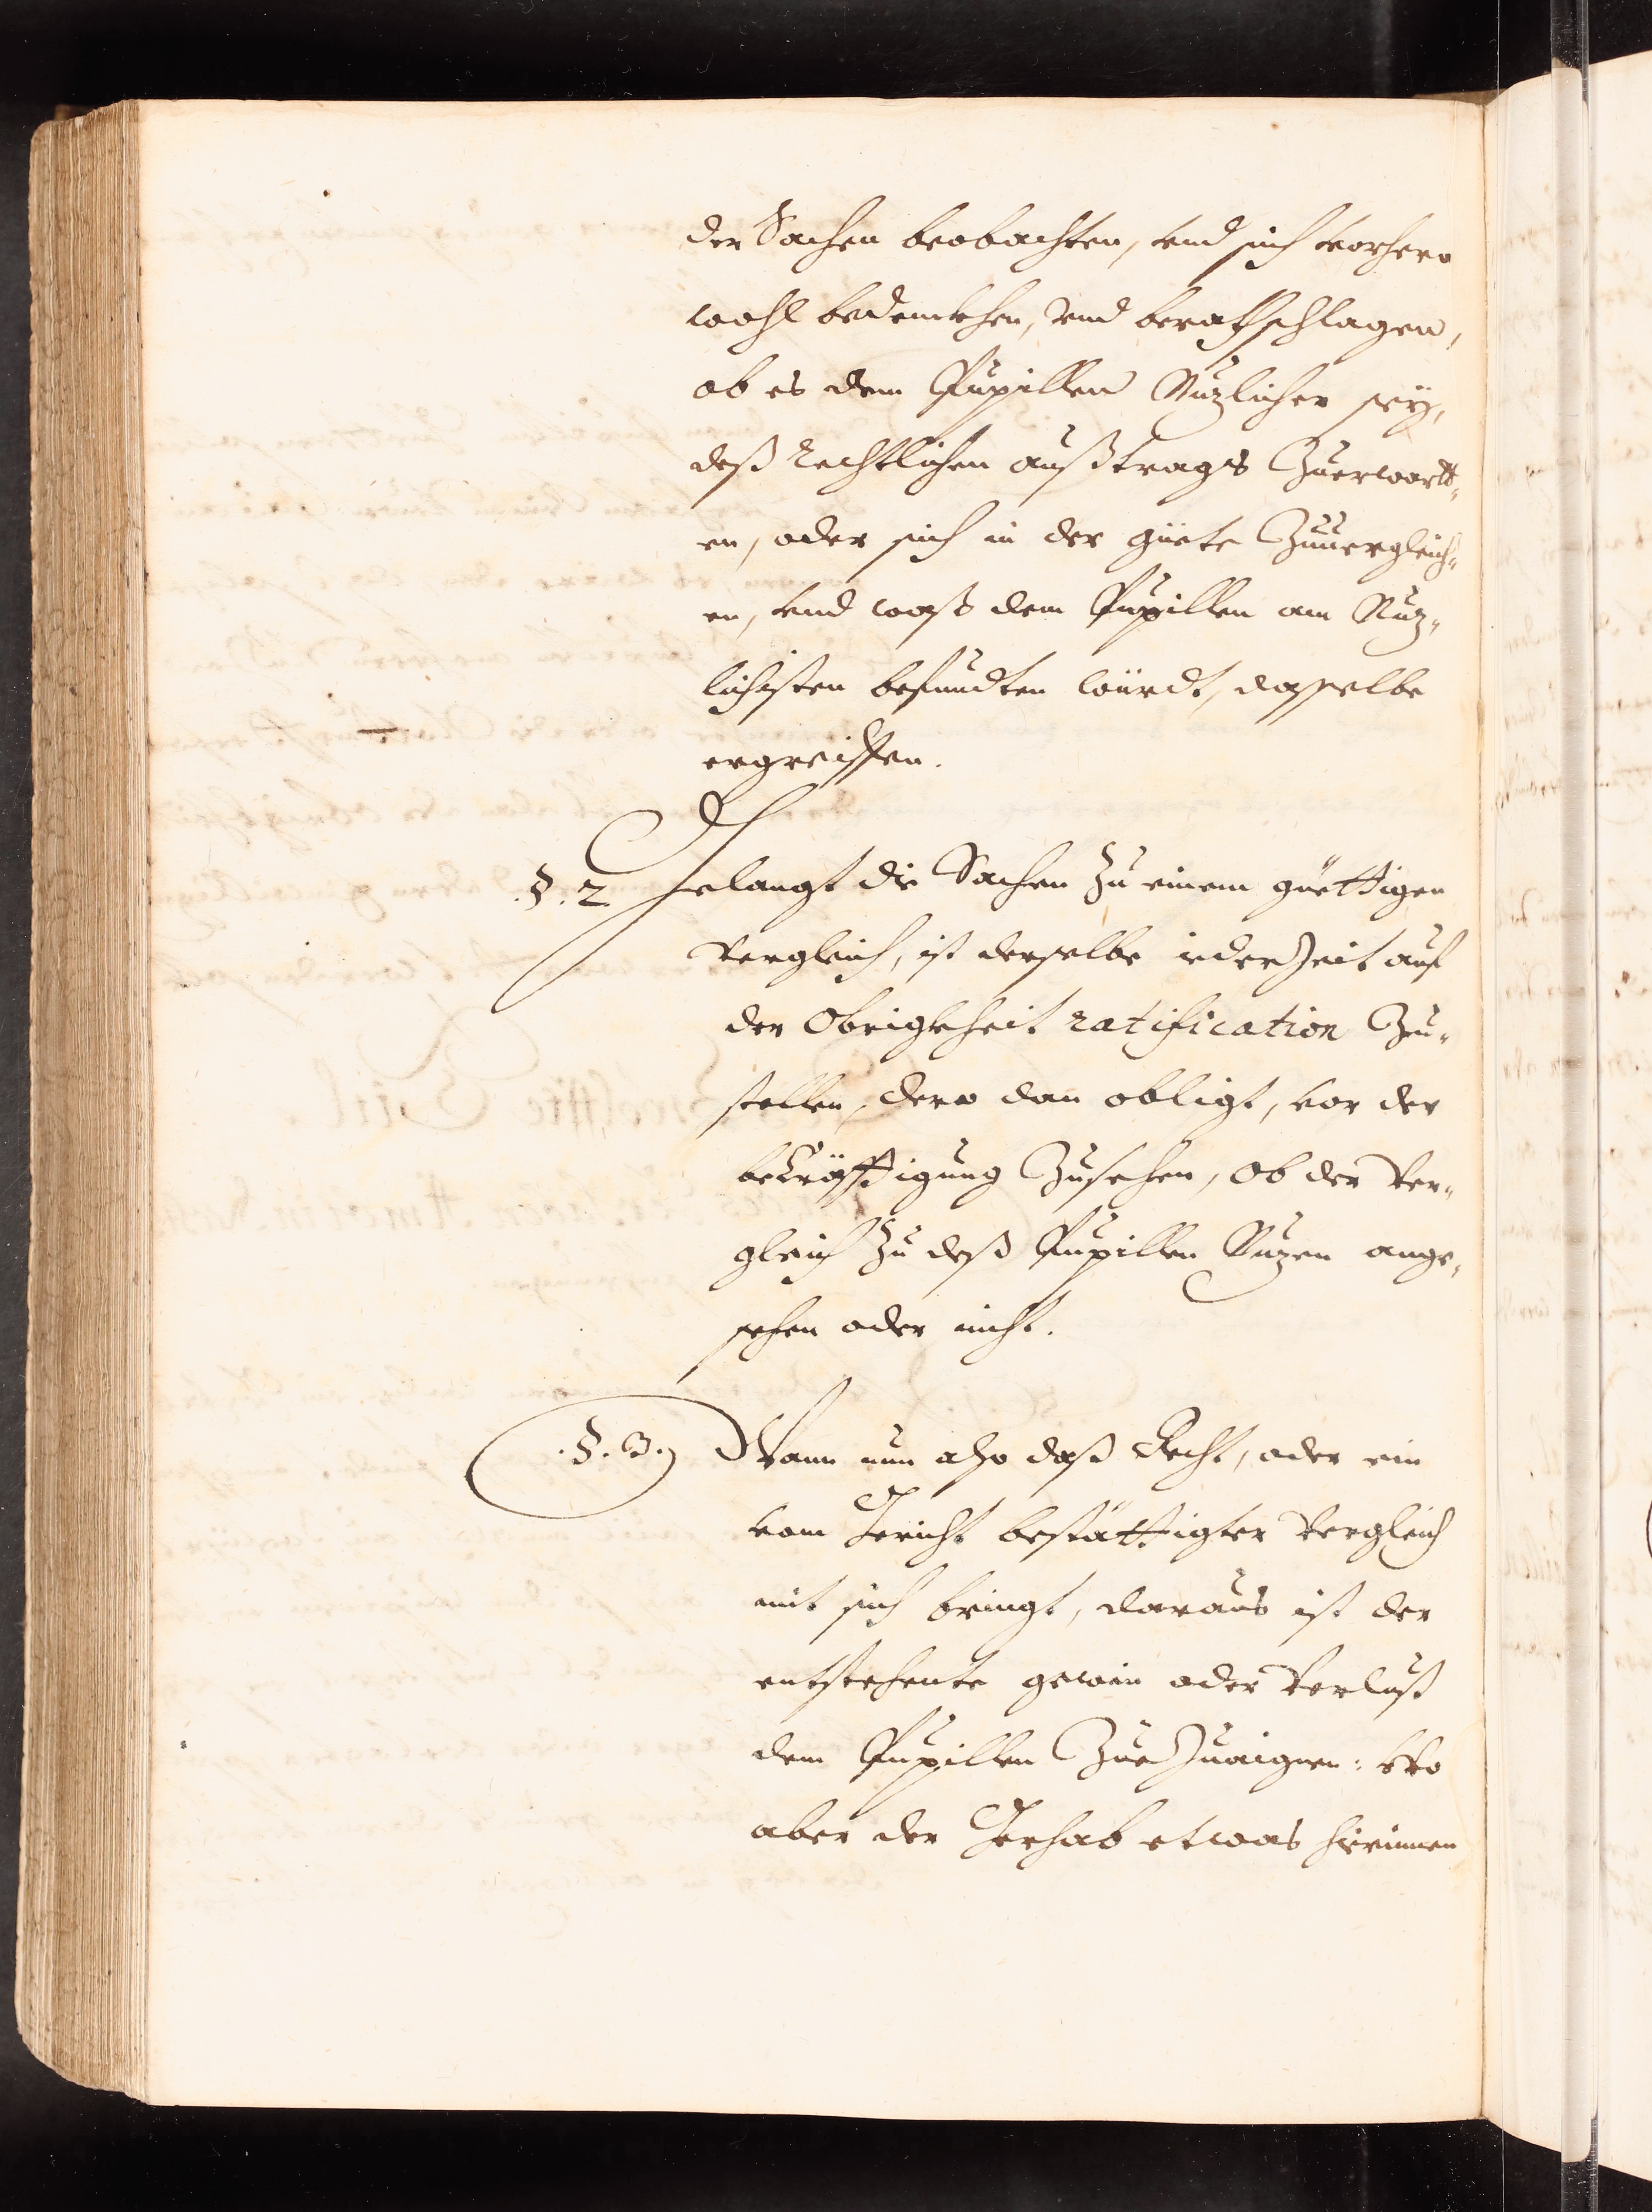 der Sachen beobachten, vnd sich vorhero
wohl bedenckhen, vnd berathschlagen,
ob es dem Pupillen Nuzlicher seÿ,
deß Rechtlichen außtrags Zuerwartt-
en, oder sich in der güete Zuuergleich-
en, vnd waß dem Pupillen am Nuz-
lichisten befundten würdt, dasselbe
ergreiffen.
§. 2 Gelangt die Sachen Zu einem güettigen
Vergleich, ist derselbe iederzeit auf
der Obrigkheit ratification Zu-
stellen, dero dan obligt, vor der
bekräfftigung Zusehen, Ob der Ver-
gleich Zu deß Pupillen Nuzen ange-
sehen oder nicht.
.§. 3. Wann nun also daß Recht, oder ein
vom Gericht bestättigter Vergleich
mit sich bringt, daraus ist der
entstehente gewin oder Verlust
dem Pupillen Zuezuaignen: Wo
aber der Gerhab etwas hierinnen